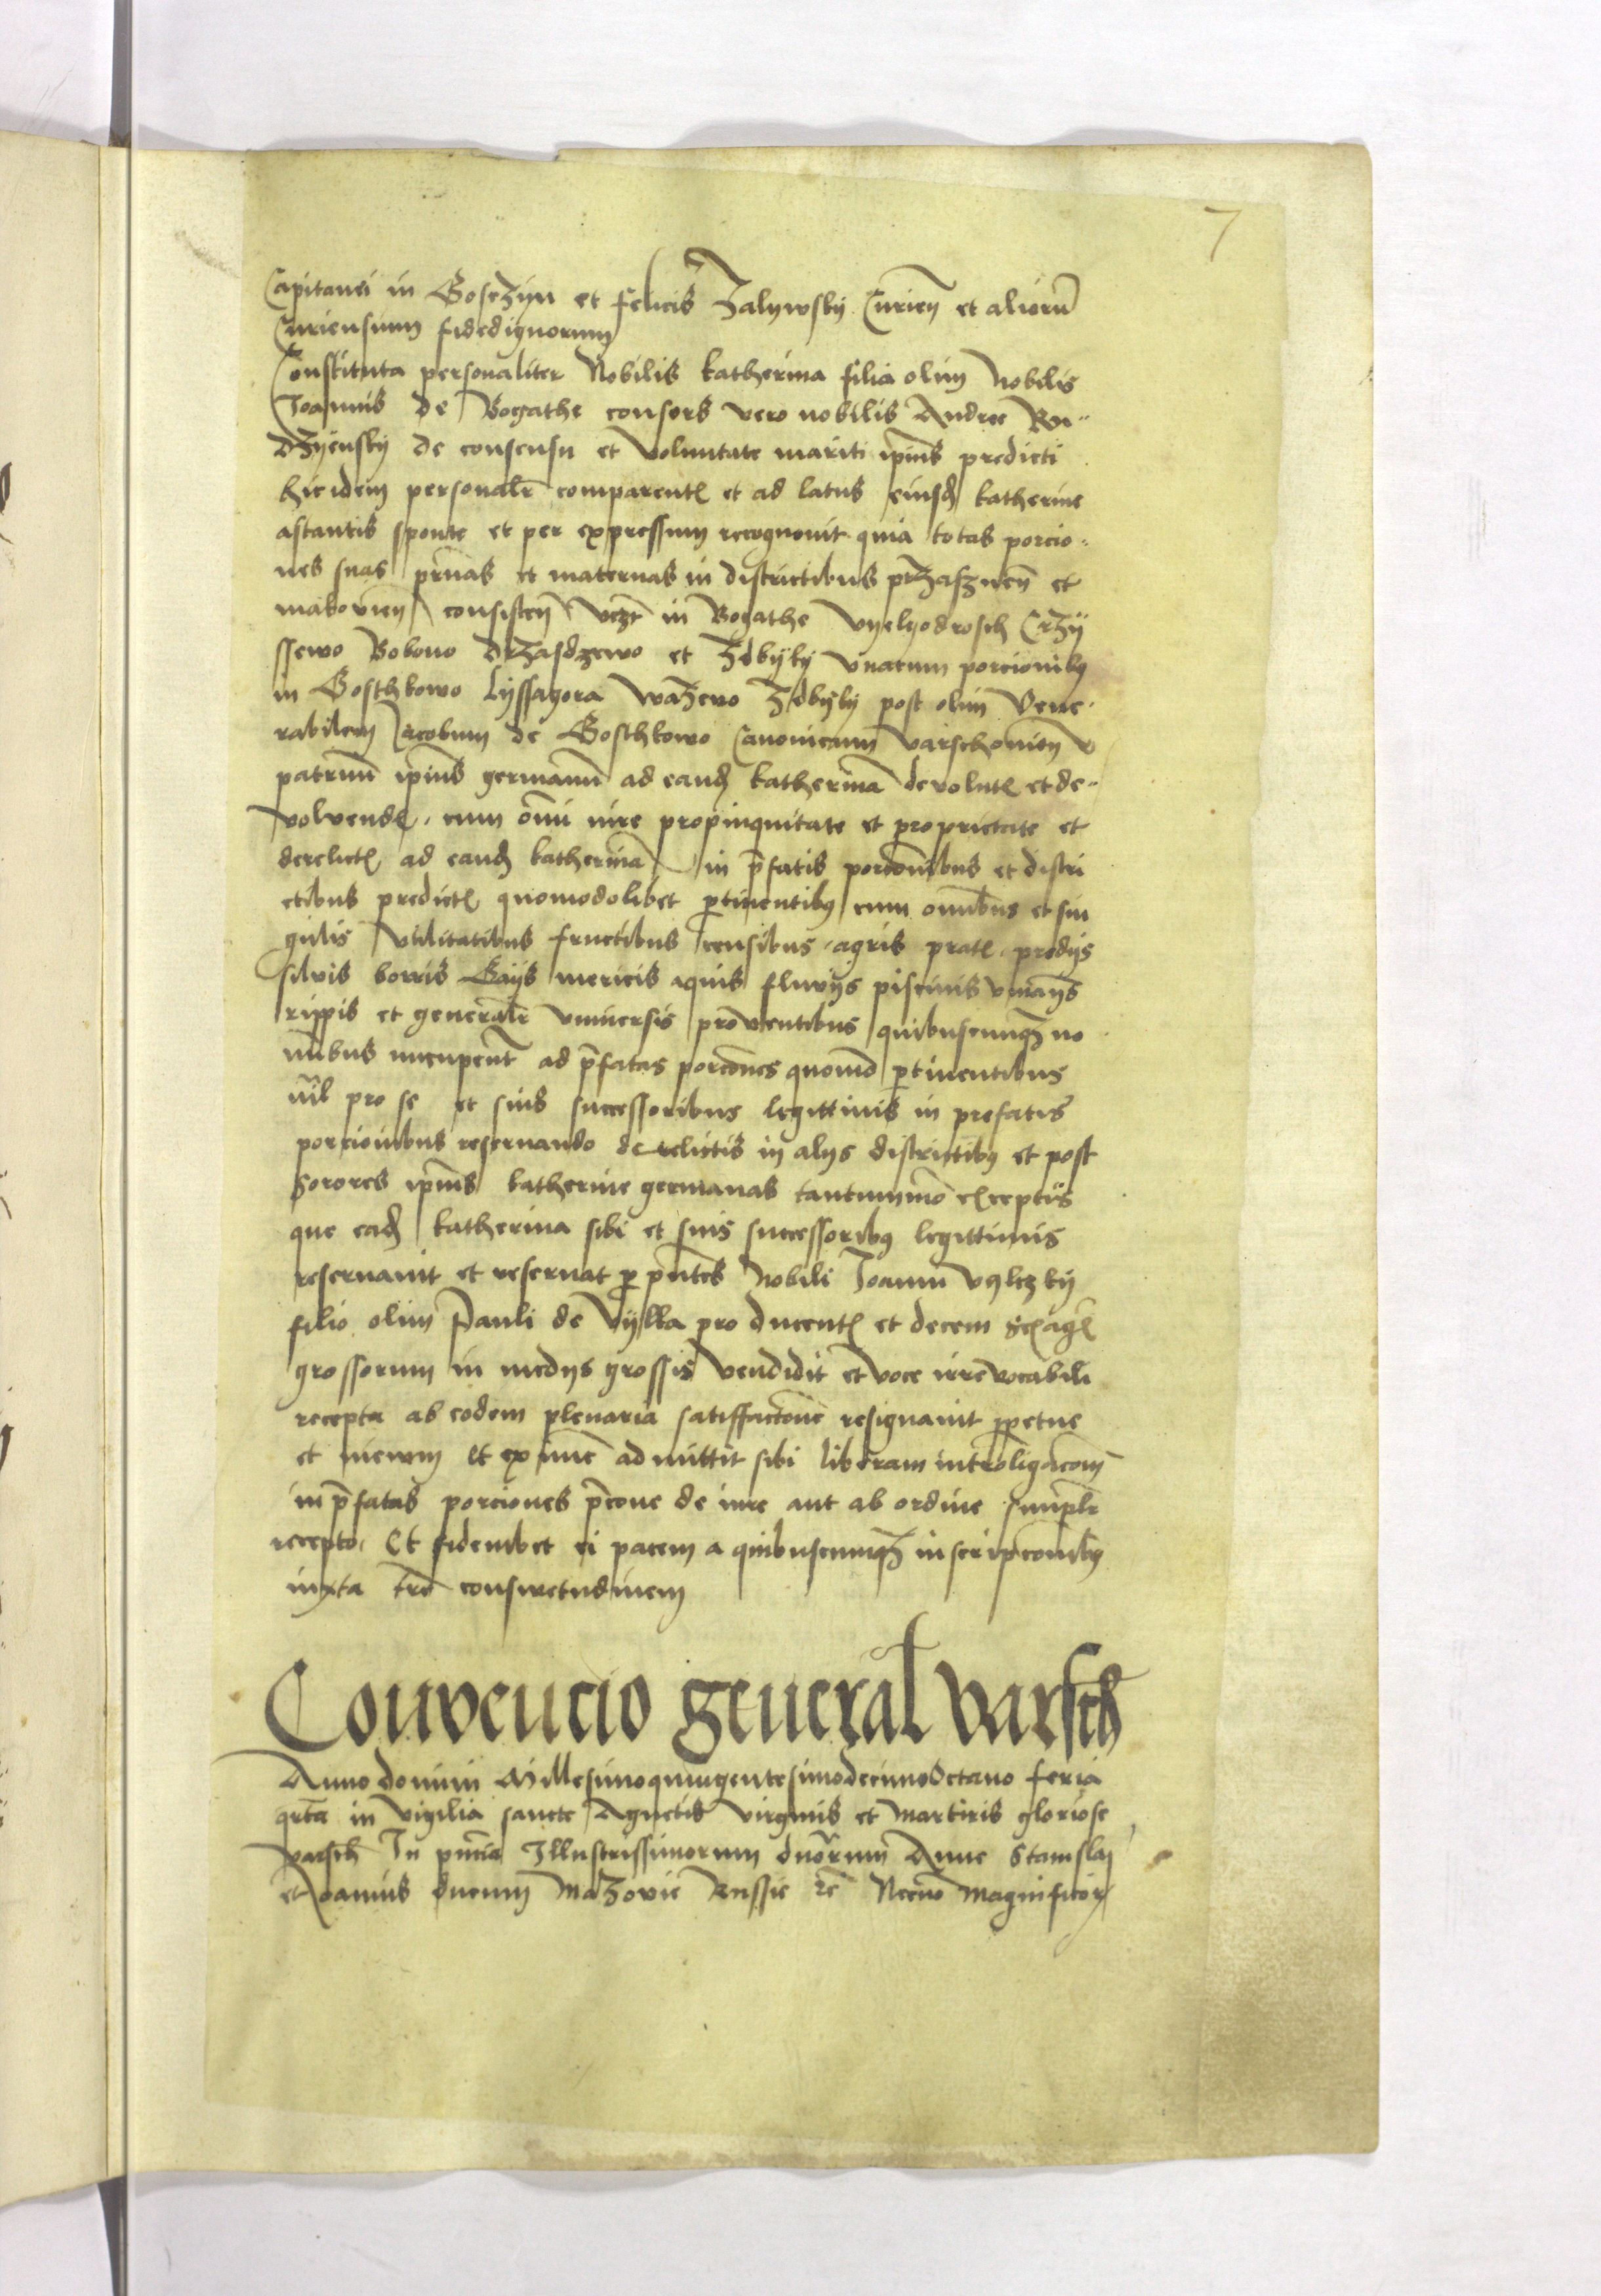 7
Capitanei in Gosczyn et felicis Zalywsky Curien et aliorū
Curiensium fidedignorum
Constituta personaliter Nobilis katherina filia olim nobilis
Joannis de Bogathe consors vero nobilis Andree Ru-
dzyensky de consensu et voluntate mariti ipīus predicti
hic idem personalr comparent et ad latus eiusd katherine
astantis sponte et per expressum recognouit quia totas porcio-
nes suas prnas et maternas in districtibus przasznen et
makovien consisten vczt in Bogathe vyelyodrosch Crzy
ssewo Bobovo drzasdzewo et Zdbyky vnacum porcionibs
in Goschkowo lyssagora wazewo Zdbyky post olim Vene-
rabilem Jacobum de Goschkowo Canonicum varschovien
patruū ipīus germanū ad eand katherinā devolut et de-
volvend cum omī iure propinquitate et proprietate et
derelict ad eand katherinā in pfatis porcōnibus et distri
ctibus predict quomodolibet ptinentibs cum omībus et sin
gulis vtilitatibus fructibus censibus agris prat predys
silvis borris Gays mericis aquis fluvys piscinis vmays
rippis et generalr vniversis proventibus quibuscunqz no
mībus nucupent ad pfatas porcōnes quomd ptinentibus
nīl pro se et suis successoribus legittimis in prefatis
porcionibus reservando derelictis in alys districtibs et post
sorores ipīus katherine germanas tantummō exceptis
que ead katherina sibi et suis successoribs legittimis
reservavit et reservat p pntes Nobili Joanni vyltzky
filio olim Pauli de Vylka pro ducent et decem sexag
grossorum in medys grossis vendidit et voce irrevocabili
recepta ab eodem plenaria satisffactōne resignavit ppetue
et inevum Et ex nunc admittit sibi liberam introligacōm
in pfatas porciones pcone de iure aut ab ordine simplr
recepto Et fidemibet ei pacem a quibuscunqz inscripcōnibs
iuxta tre conswetudinem
Convencio general varsch
Anno domini Millesimoquingentesimodecimooctavo feria
qrta in vigilia sancte Agnetis virginis et martiris gloriose
varsch In pncia Illustrissimorum duōrum Anne Stanislai
et Joannis ducum Mazovie Russie rc Necno magnificor